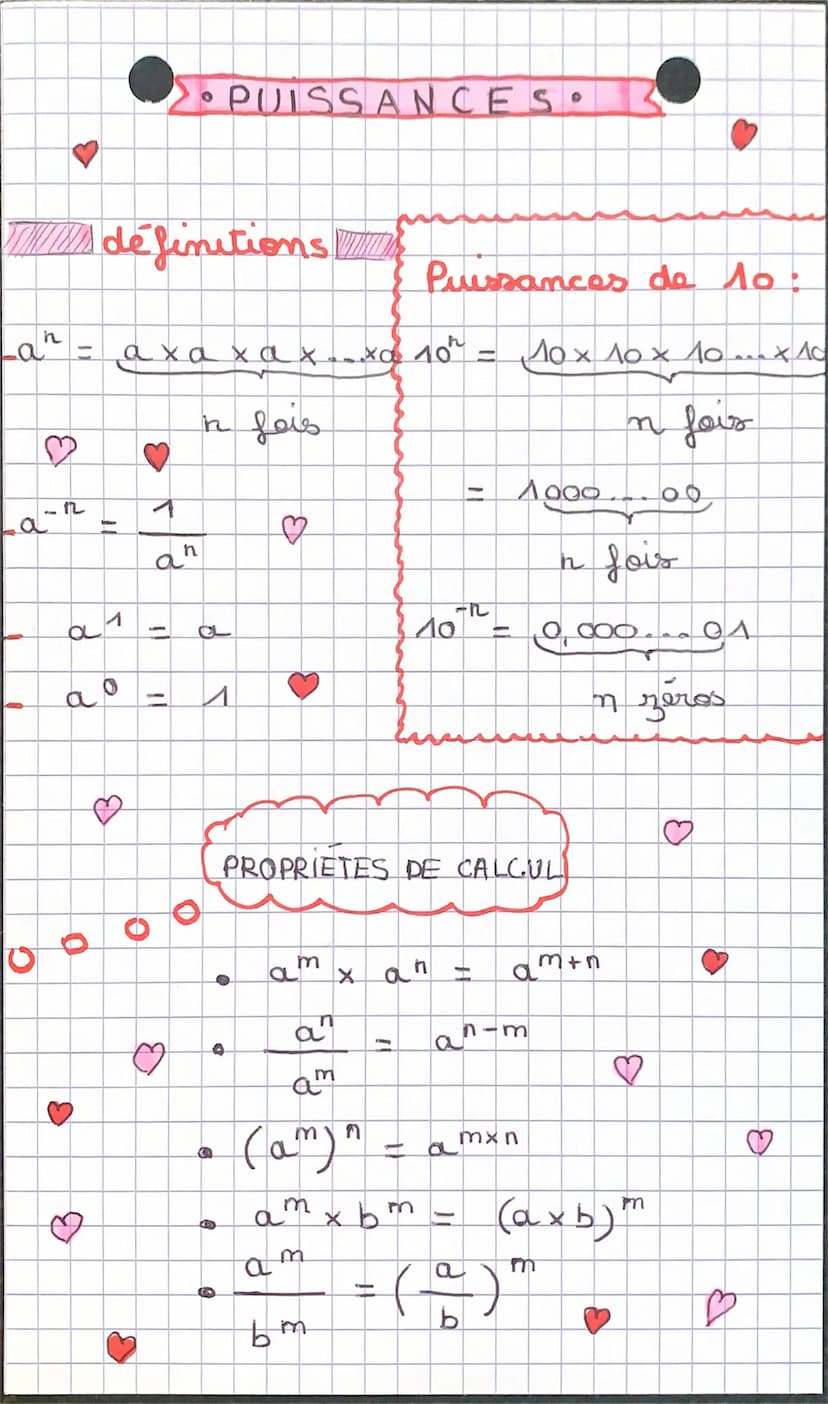 • PUISSANCES •
définitions
- aⁿ = a x a x a x ... x a
n fois
- a⁻ⁿ = 1/aⁿ
- a¹ = a
- a⁰ = 1
Puissances de 10 :
10ⁿ = 10 x 10 x 10 ... x 10
n fois
= 1000 ... 00
n fois
10⁻ⁿ = 0,000 ... 01
n zéros
PROPRIÉTES DE CALCUL
• aᵐ x aⁿ = aᵐ⁺ⁿ
• aⁿ/aᵐ = aⁿ⁻ᵐ
• (aᵐ)ⁿ = aᵐˣⁿ
• aᵐ x bᵐ = (a x b)ᵐ
• aᵐ/bᵐ = (a/b)ᵐ